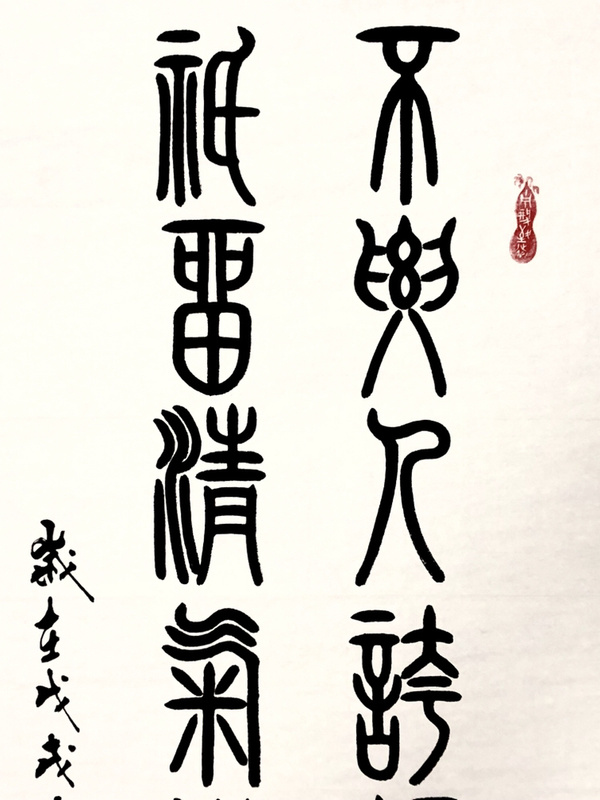 不要人誇
祇留清氣
歲在戊戌